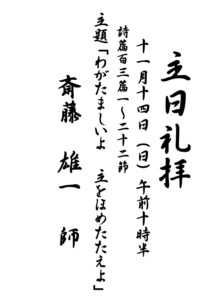 主日礼拝
十一月十四日（日）午前十時半
詩篇百三篇一～二十二節
主題「わがたましいよ　主をほめたたえよ」
斎藤　雄一　師